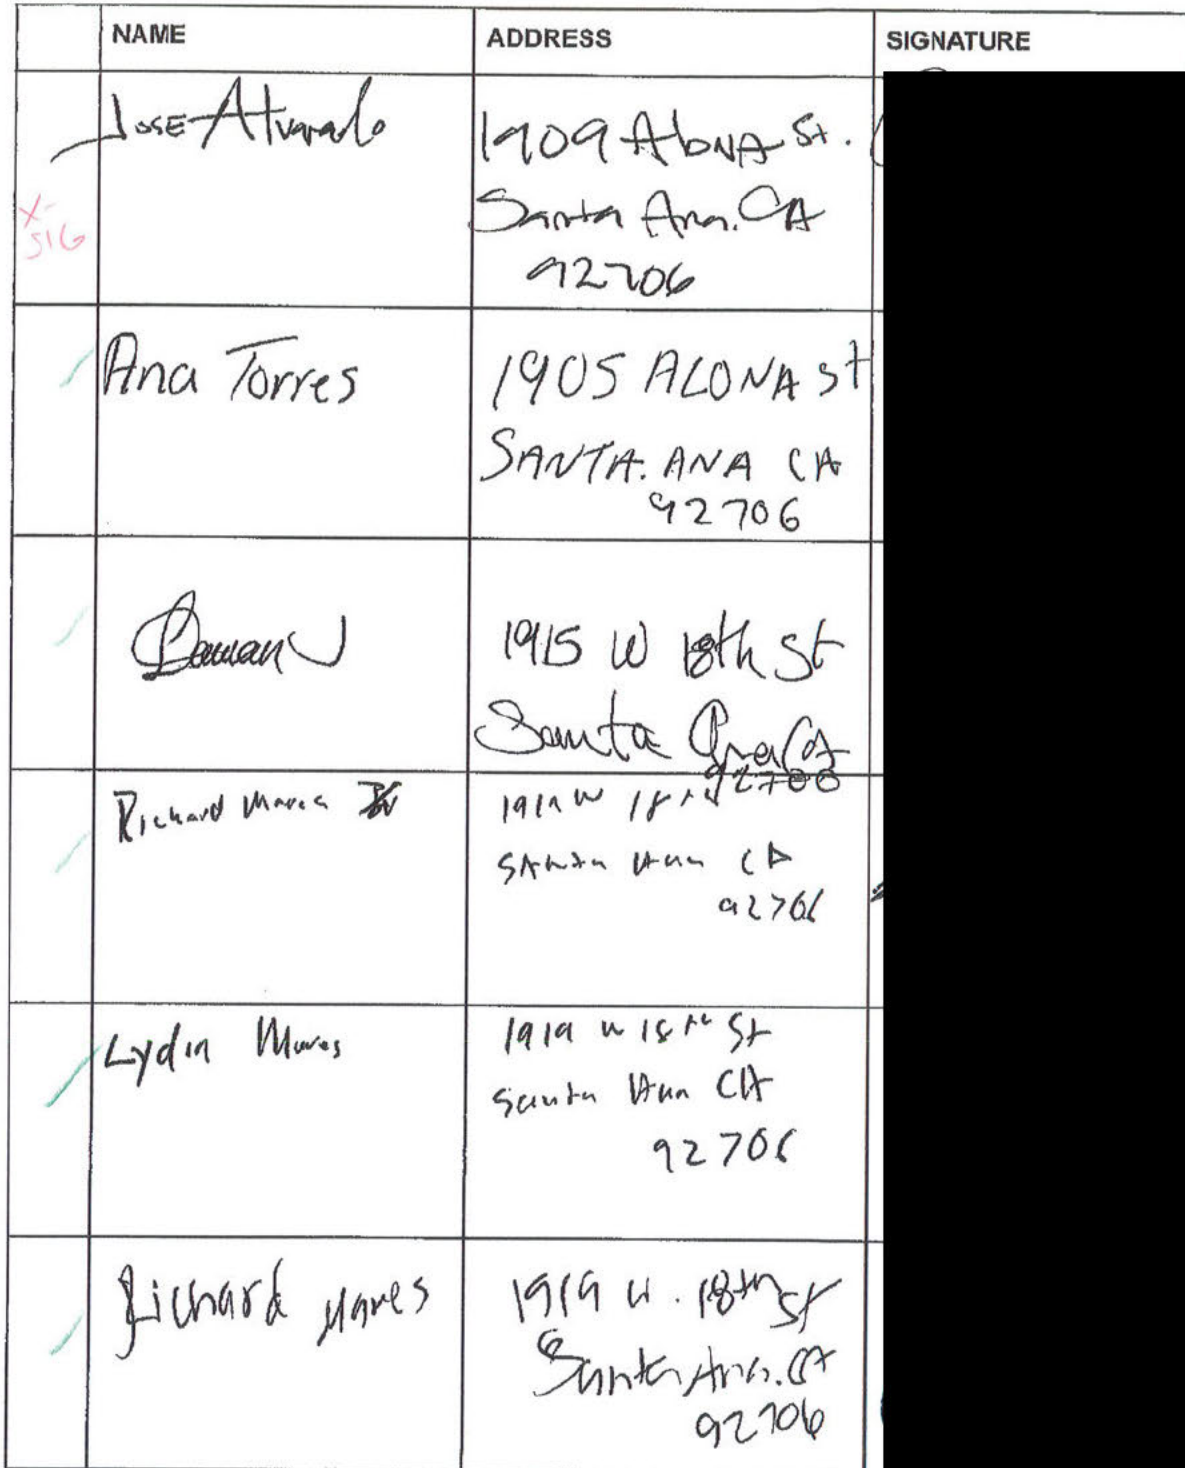 NAME ADDRESS SIGNATURE
Jose Alvarado 1909 Alona St.
Santa Ana. CA
92706
X-
SIG
Ana Torres 1905 ALONA St
SANTA. ANA CA
92706
1915 W 18th St
Santa Ana CA
Richard Mares 1919 W 18th
Santa Ana CA
92706
Lydia Mares 1919 W 18th St
Santa Ana CA
92706
Richard Mares 1919 W. 18th St
Santa Ana. CA
92706